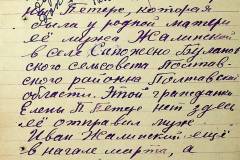 Петере, которая
была у родной матери
её мужа Жалинский
в селе
ского сельсовета
ского района Полтавской
области. Этой гражданки
Елены П. Петере нет здесь
её отправил муж
Иван Жалинский ещё
в начале марта, а